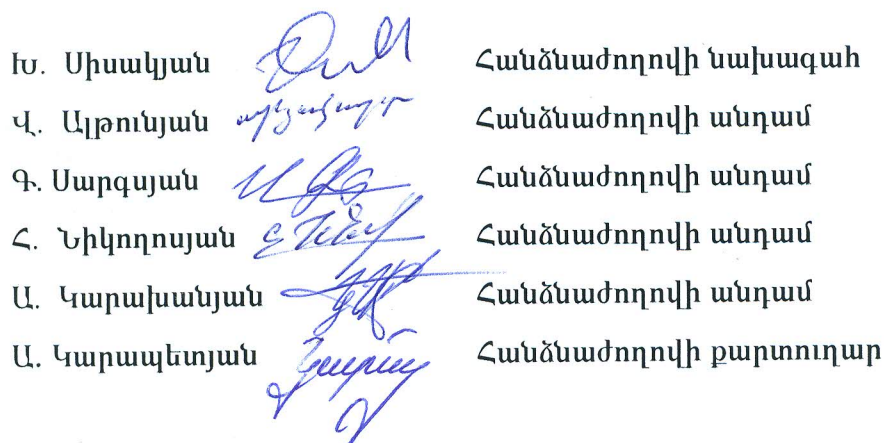 Խ. Սիսակյան Հանձնաժողովի նախագահ
Վ. Ալթունյան Հանձնաժողովի անդամ
Գ. Սարգսյան Հանձնաժողովի անդամ
Հ. Նիկողոսյան Հանձնաժողովի անդամ
Ա. Կարախանյան Հանձնաժողովի անդամ
Ա. Կարապետյան Հանձնաժողովի քարտուղար